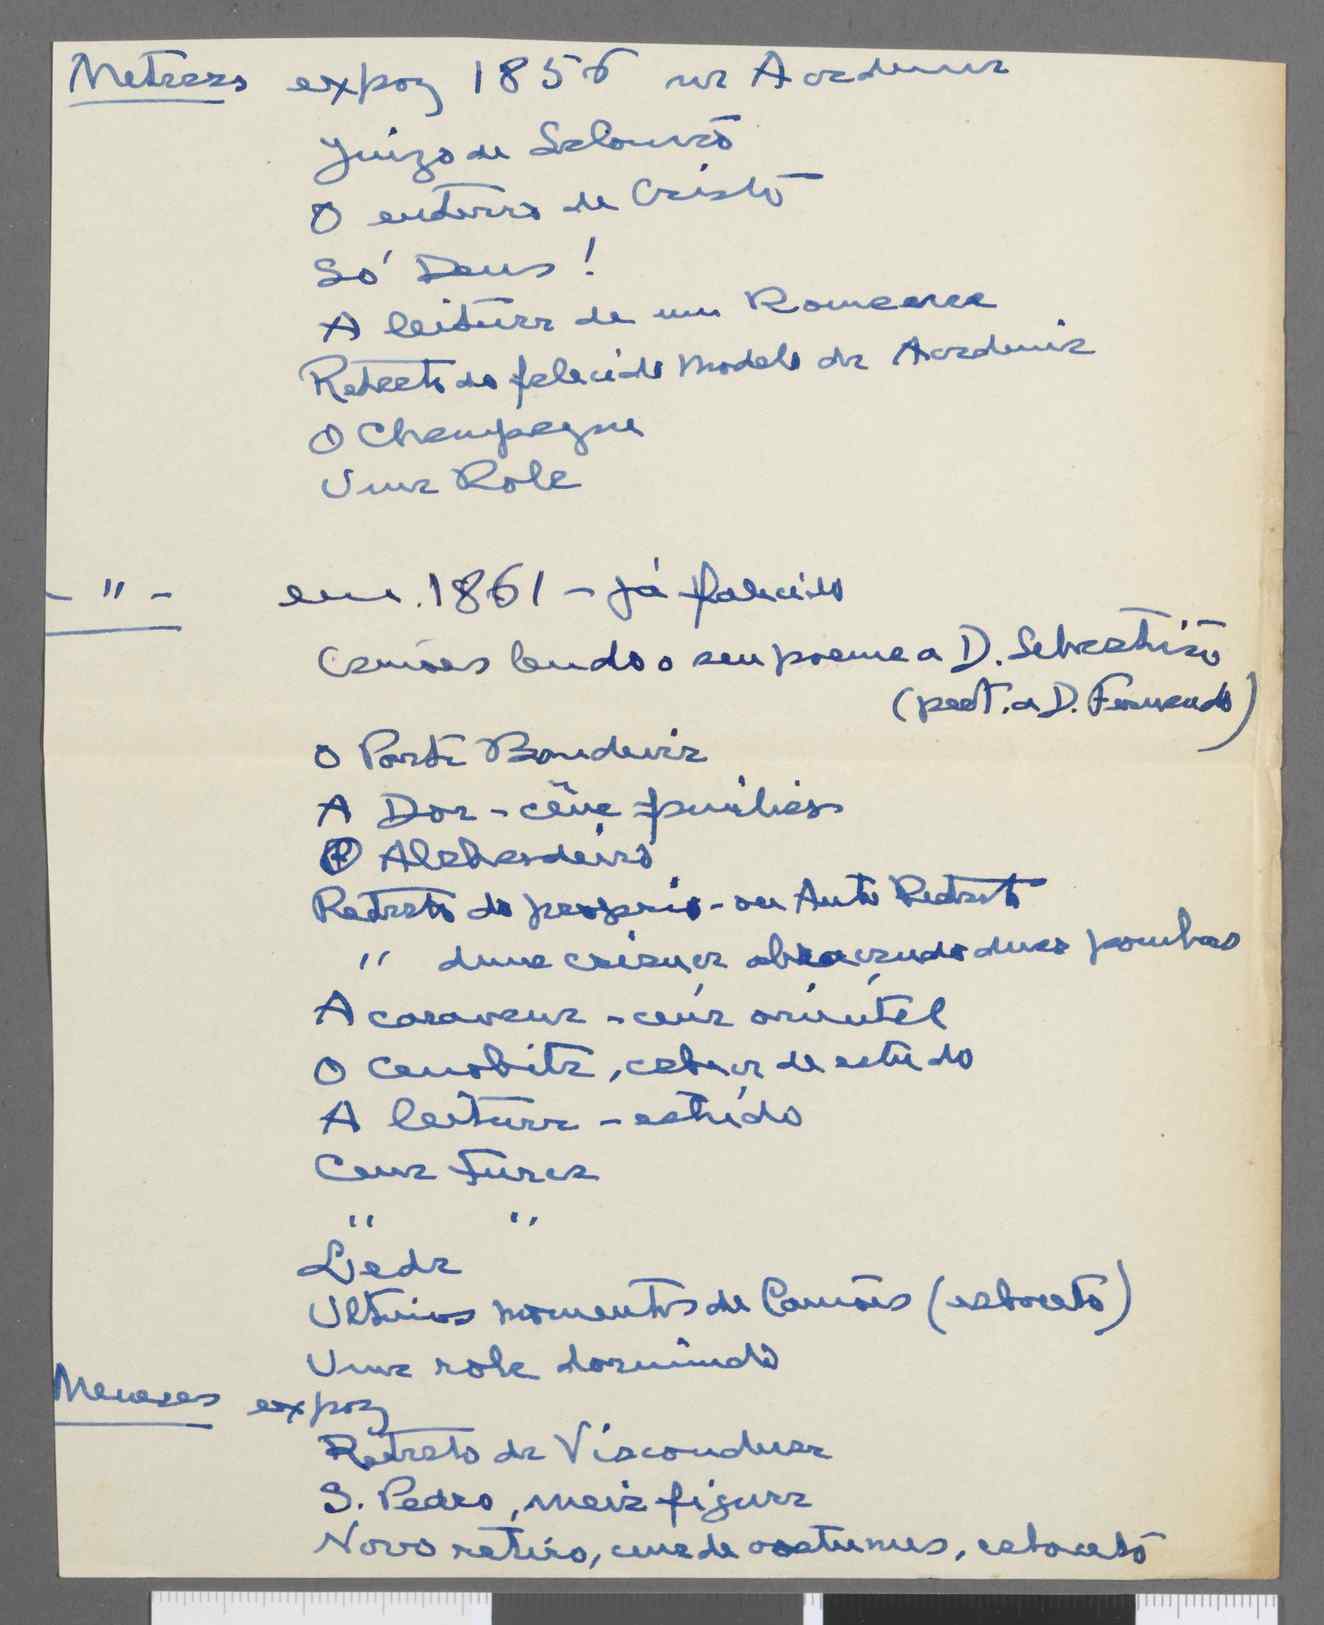 Metrass expoz 1856 na Academia
Juizo de Salomão
O enterro de Cristo
Só Deus !
A leitura de um Romance
Retrato do falecido Modelo da Academia
O Champagne
Uma Rola
- " - em 1861 - já falecido
Camões lendo o seu poema a D. Sebastião
(pert. a D. Fernando)
O Porta Bandeira
A Dor - cêna familiar
O Alabardeiro
Retrato do proprio - ou Auto Retrato
" duma criança abraçando duas pombas
A caravana - cena oriental
O Cenobita, cabeça de estudo
A leitura - estudo
Cena Turca
" "
Leda
Ultimos momentos de Camões (esboceto)
Uma rola dormindo
Meneses expoz
Retrato da Viscondessa
S. Pedro, meia figura
Novo retiro, cena de costumes, esboceto